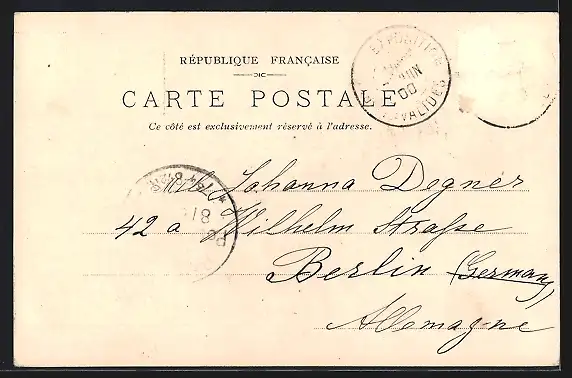 RÉPUBLIQUE FRANÇAISE
CARTE POSTALE
Ce côté est exclusivement réservé à l'adresse.
EXPOSITION
JUIN
00
INVALIDES
Mlle Johanna Degner
42 a Wilhelm Straße
Berlin (Germany)
Allemagne